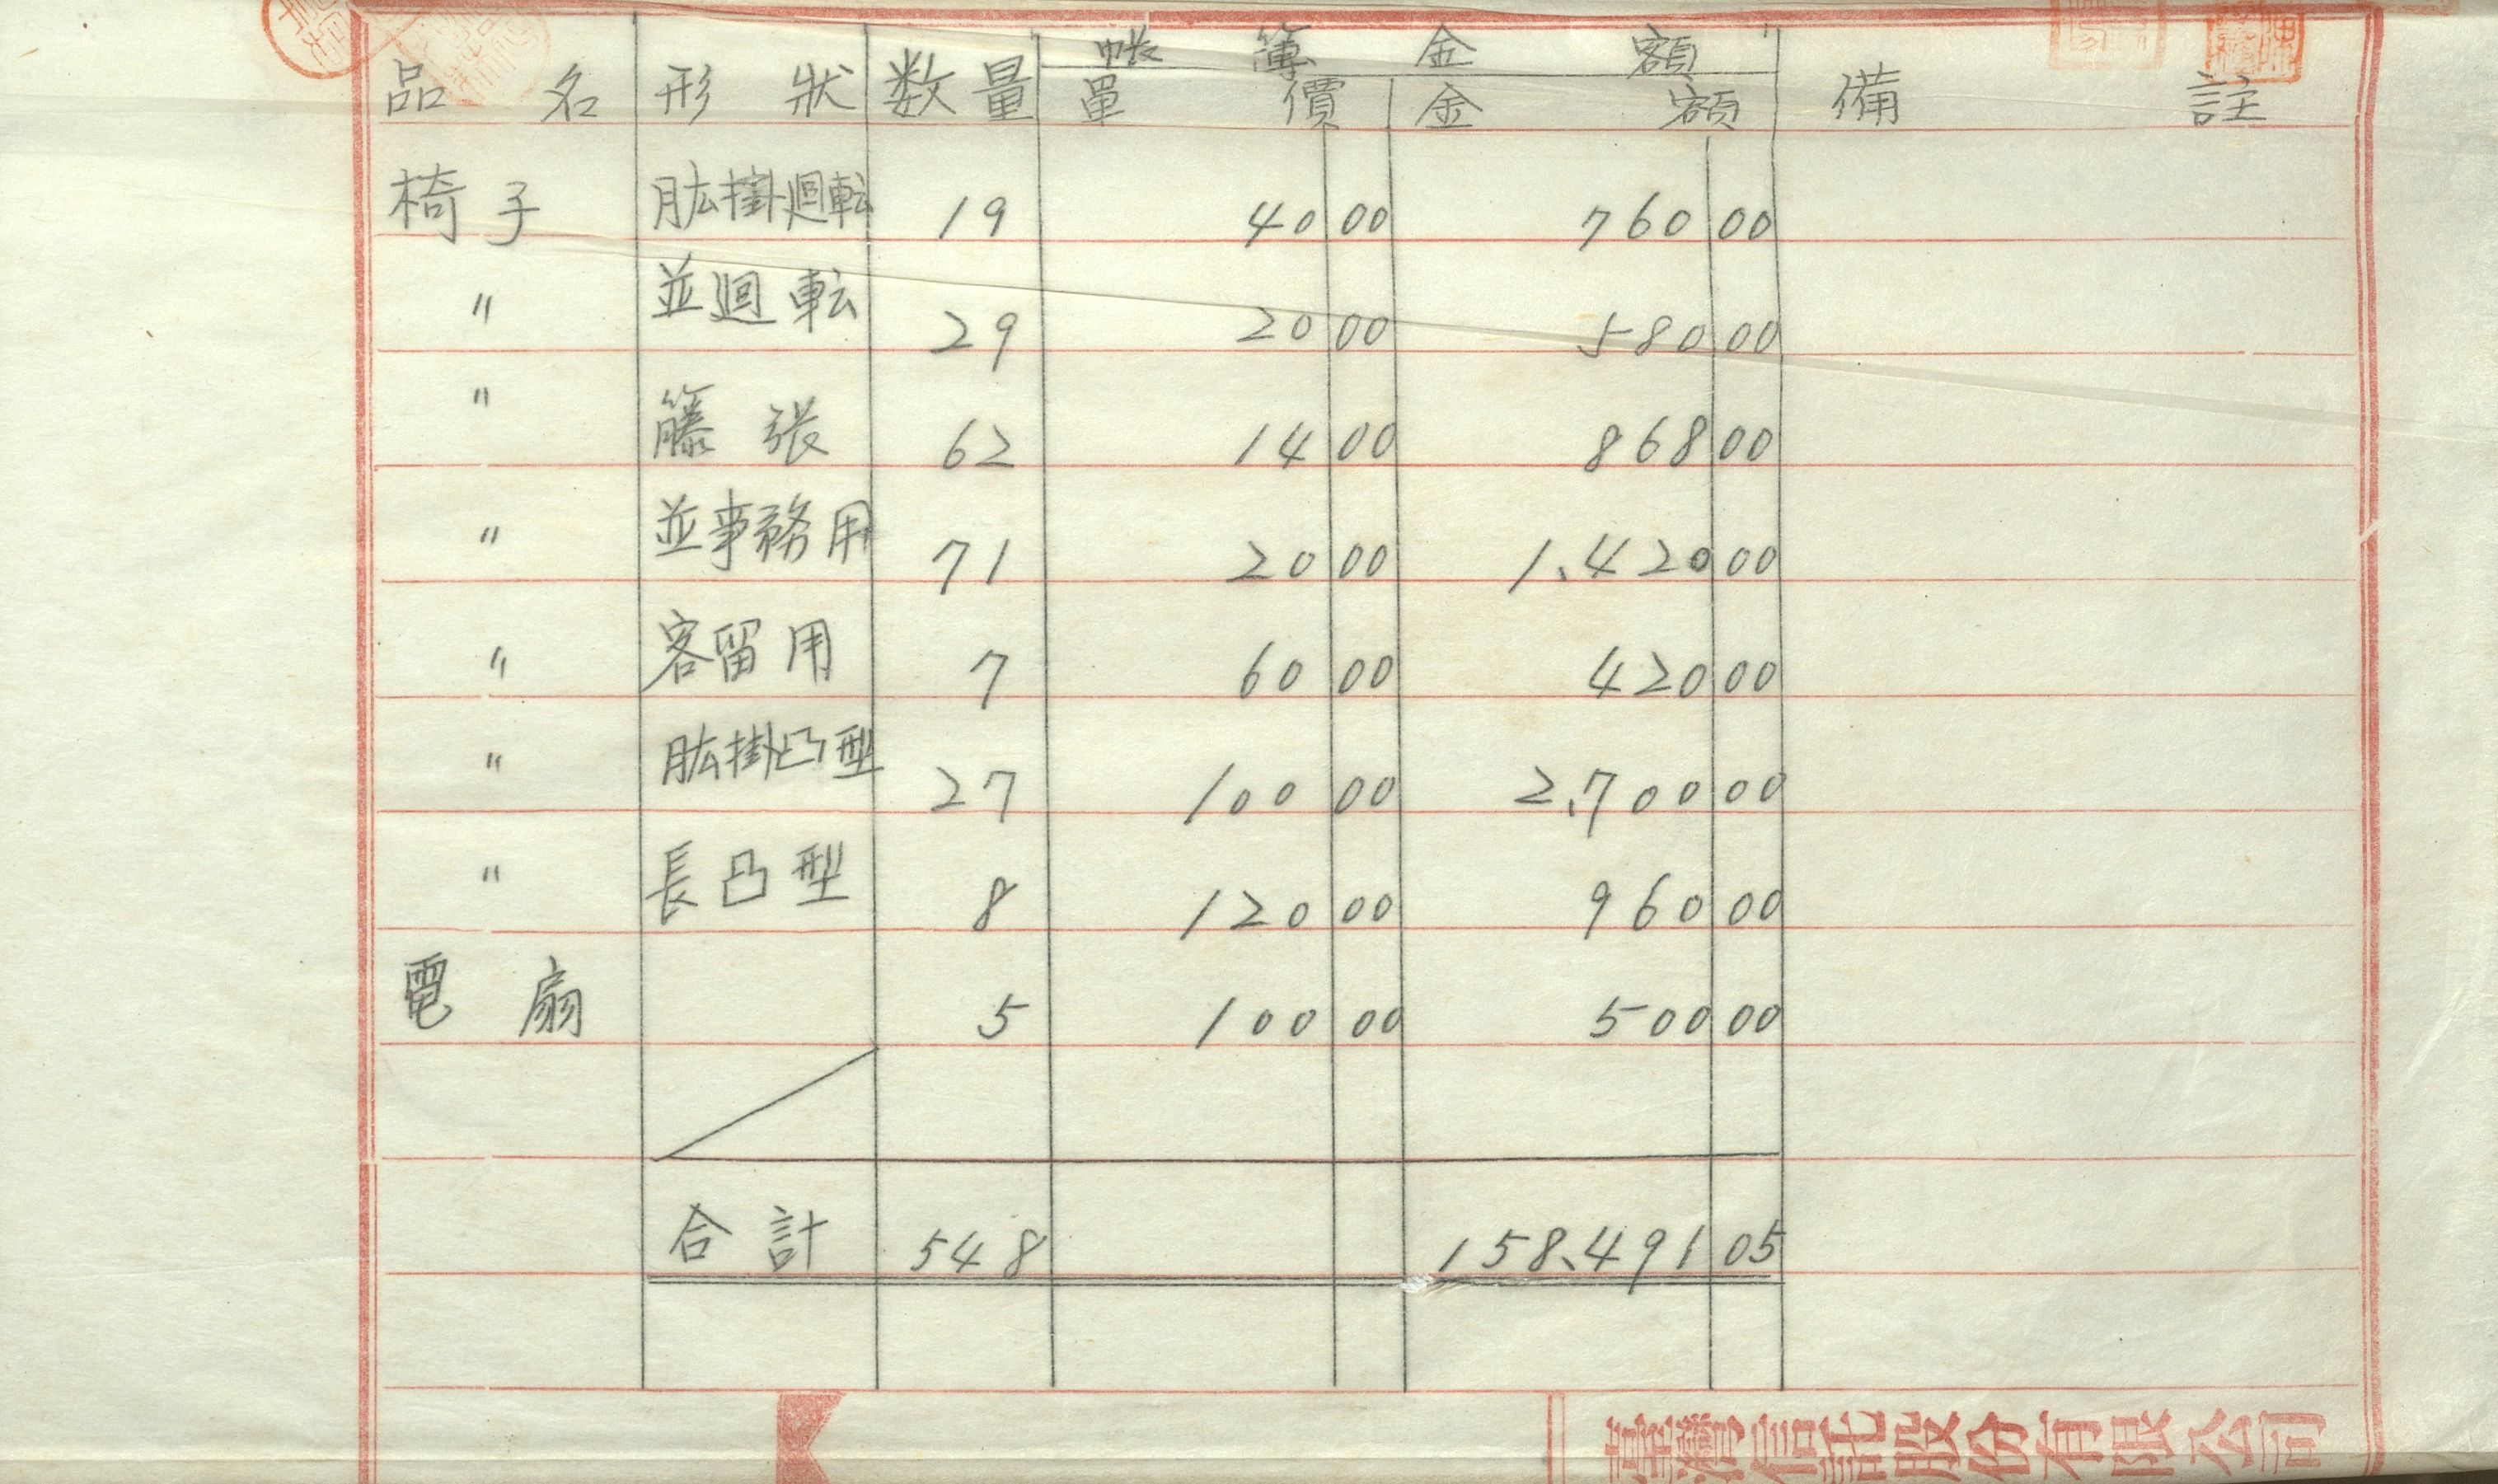 帳簿金額
品名 形狀 数量 單價 金額 備註
椅子 肱掛廻転 19 40 00 760 00
〃 並廻転 29 20 00 580 00
〃 籐張 62 14 00 868 00
〃 並事務用 71 20 00 1.420 00
〃 客留用 7 60 00 420 00
〃 肱掛凸型 27 100 00 2.700 00
〃 長凸型 8 120 00 960 00
電扇 5 100 00 500 00
合計 548 158.491 05
臺灣信託股份有限公司